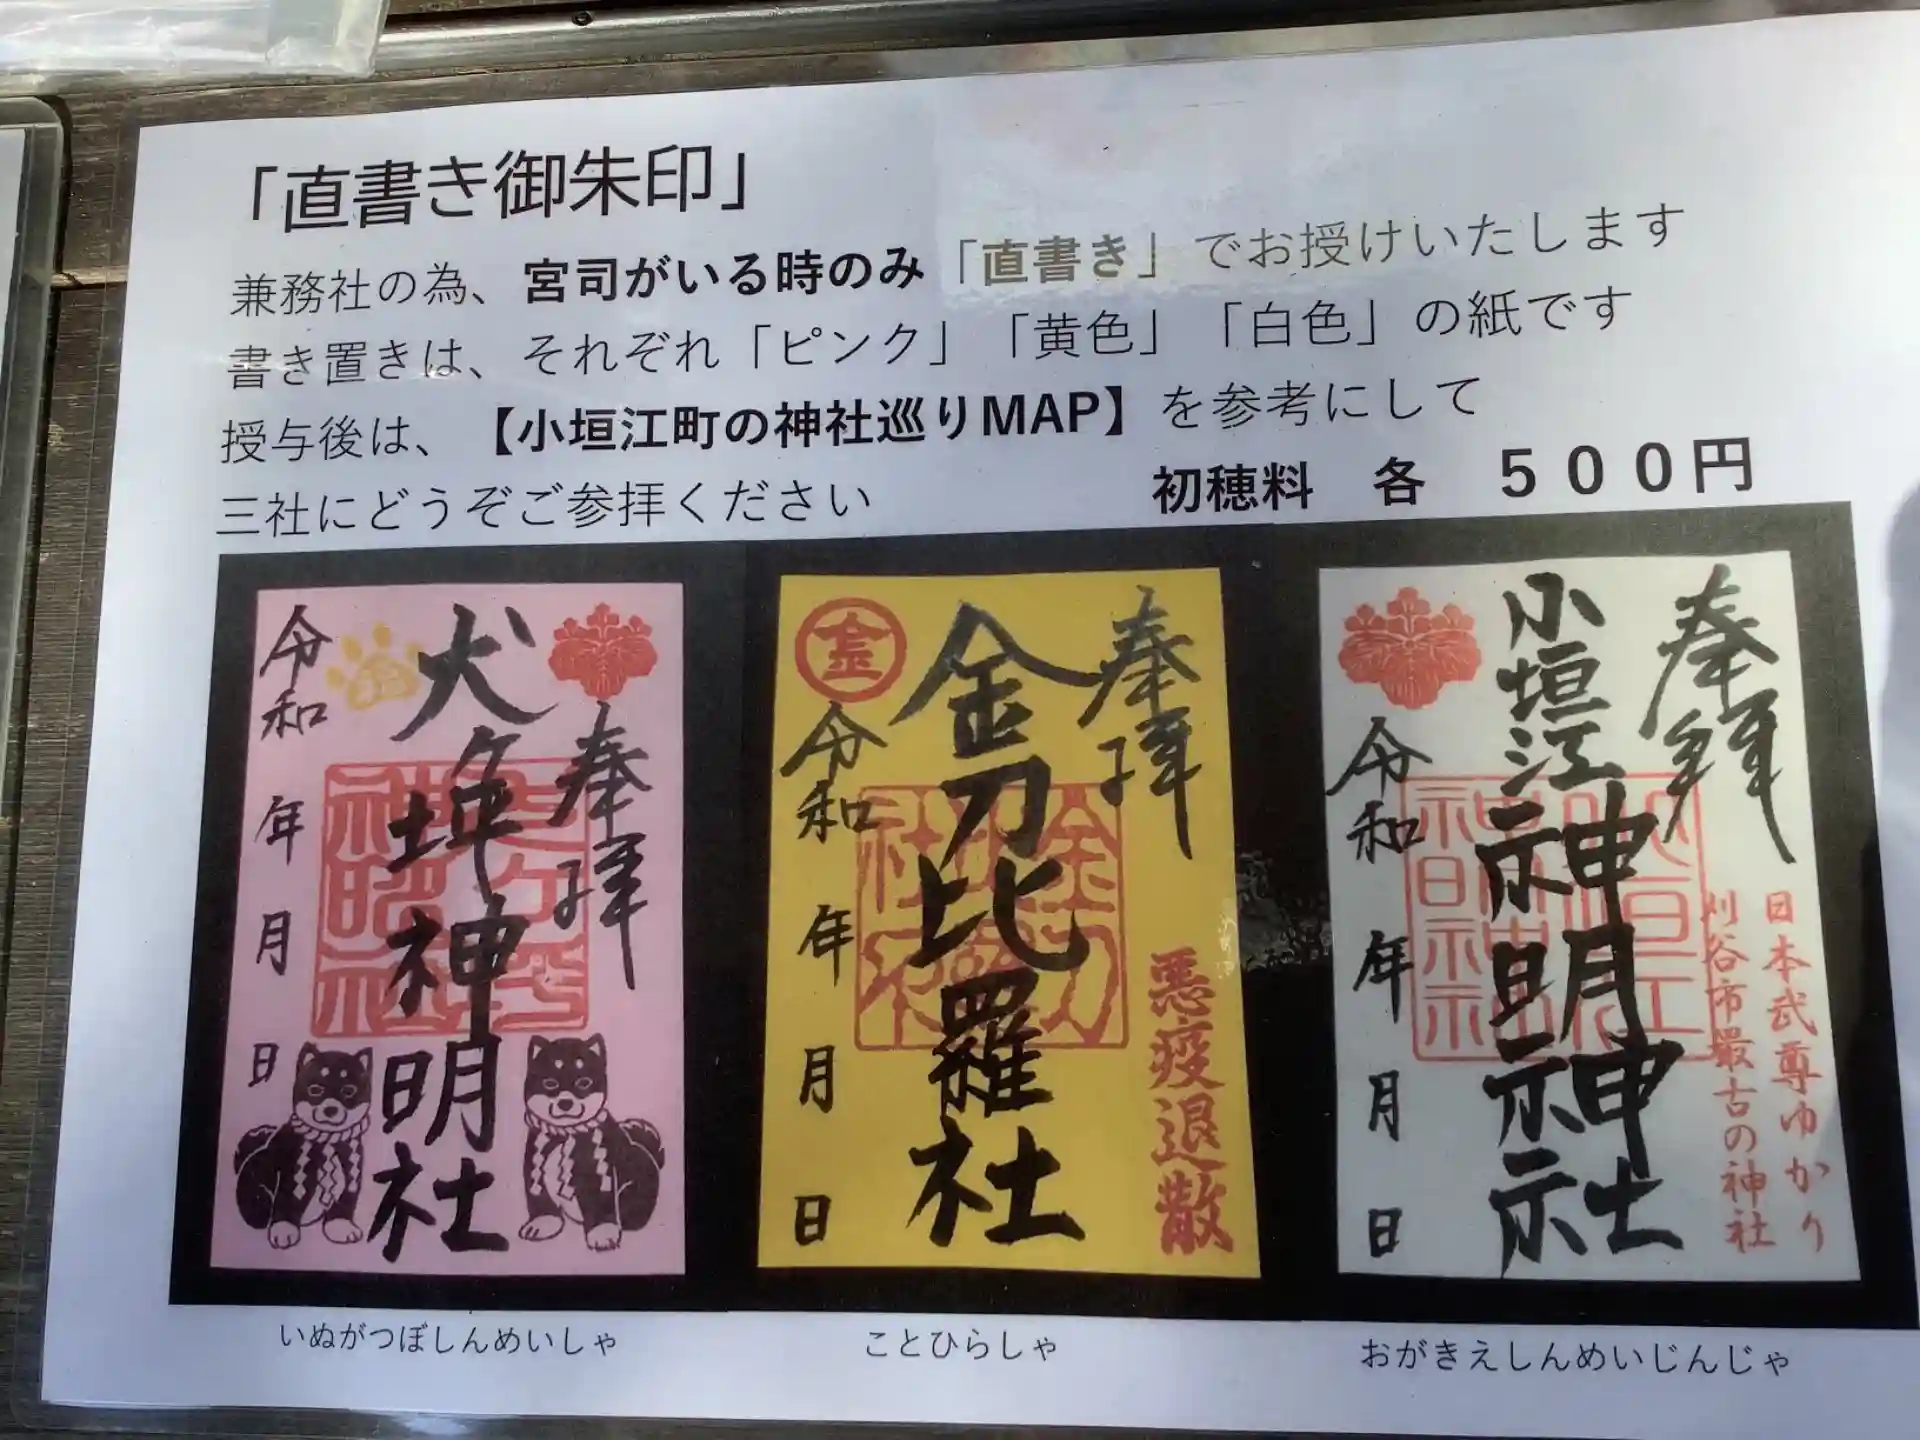 「直書き御朱印」
兼務社の為、宮司がいる時のみ「直書き」でお授けいたします
書き置きは、それぞれ「ピンク」「黄色」「白色」の紙です
授与後は、【小垣江町の神社巡りMAP】を参考にして
三社にどうぞご参拝ください
初穂料 各 ５００円
奉拝
犬ケ坪神明社
令和 年 月 日
奉拝
金刀比羅社
金
令和 年 月 日
悪疫退散
奉拝
小垣江神明神社
令和 年 月 日
日本武尊ゆかり
刈谷市最古の神社
いぬがつぼしんめいしゃ
ことひらしゃ
おがきえしんめいじんじゃ